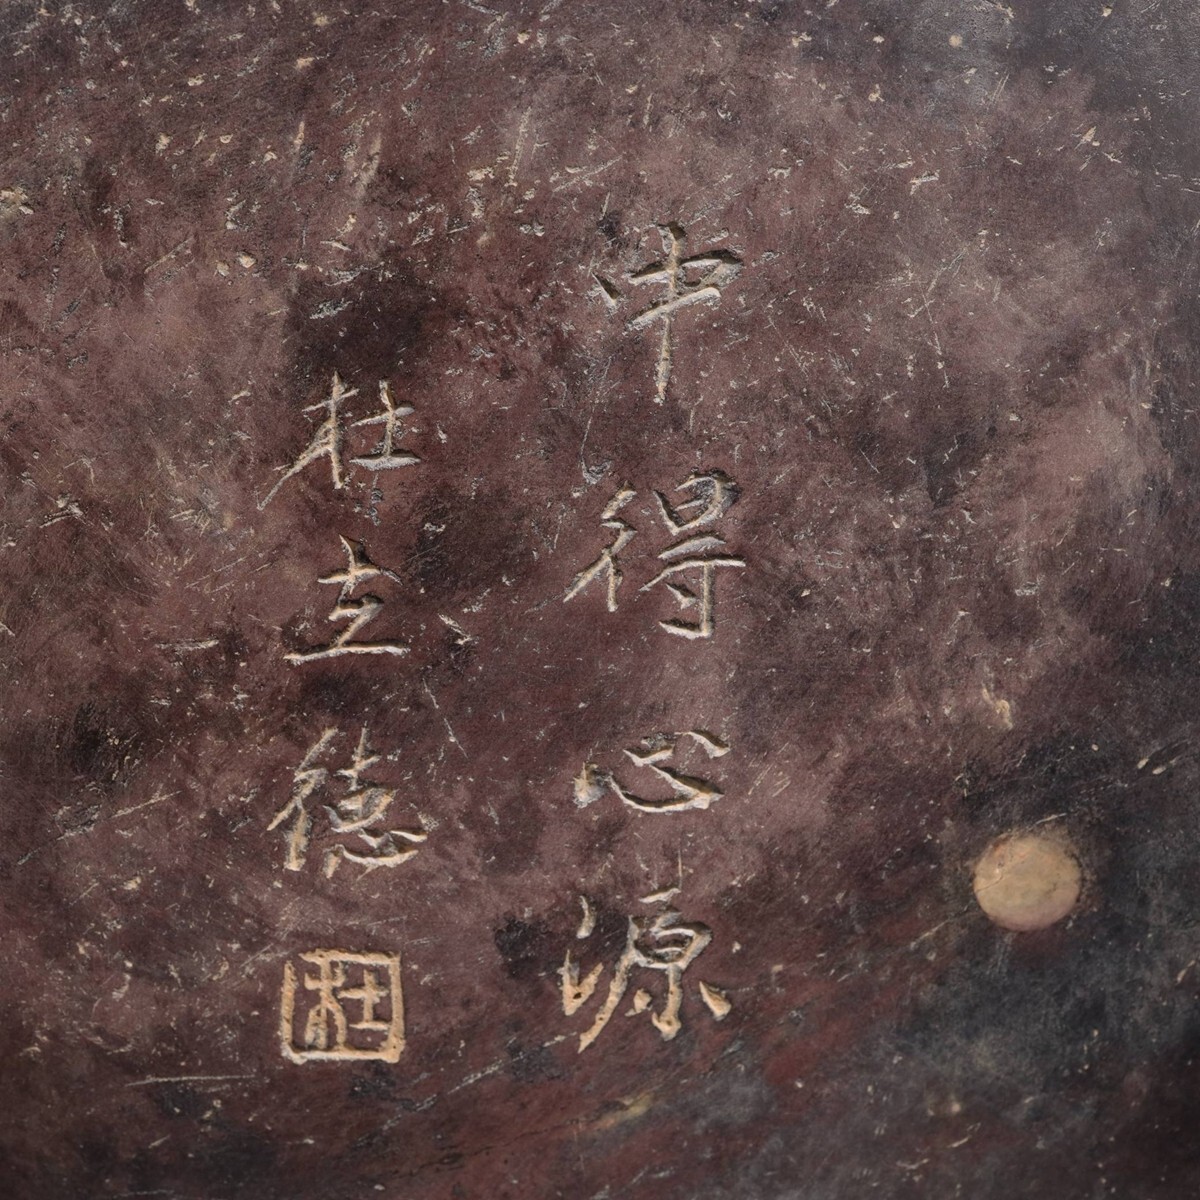 中得心源
杜立德
杜